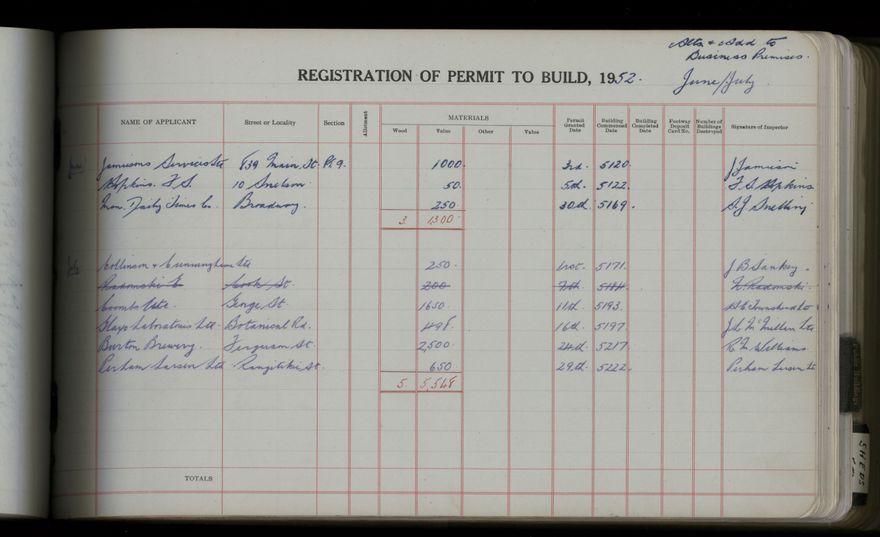 Alts + Add to
Business Premises.
REGISTRATION OF PERMIT TO BUILD, 1952.
June/July
NAME OF APPLICANT Street or Locality Section Allotment MATERIALS Wood Value Other Value Permit Granted Date Building Commenced Date Building Completed Date Footway Deposit Card No. Number of Buildings Destroyed Signature of Inspector
Jamiesons Services Ltd 839 Main St. Pt. 9. 1000. 3rd. 5120. J Jamieson
Hopkins. F. S. 10 Snelson. 50. 5th. 5122. F. S. Hopkins
Man. Daily Times Co. Broadway. 250. 30th. 5169. S. J. Snelling
3. 1300.
July Collinson & Cunninghame Ltd 250. 1st. 5171. J B Sankey.
Radomski E Cook St. 200 7th. E. Radomski
Coombs Ltd. George St. 1650. 11th. 5193.
Glaxo Laboratories Ltd. Botanical Rd. 498. 16th. 5197 J L McMillan Ltd
Burton Brewery. Ferguson St. 2,500. 24th. 5217. R. Williams.
Perham Larsen Ltd Rangitikei St. 650 29th. 5222. Perham Larsen Ltd
5. 5,548
TOTALS
SHEDS